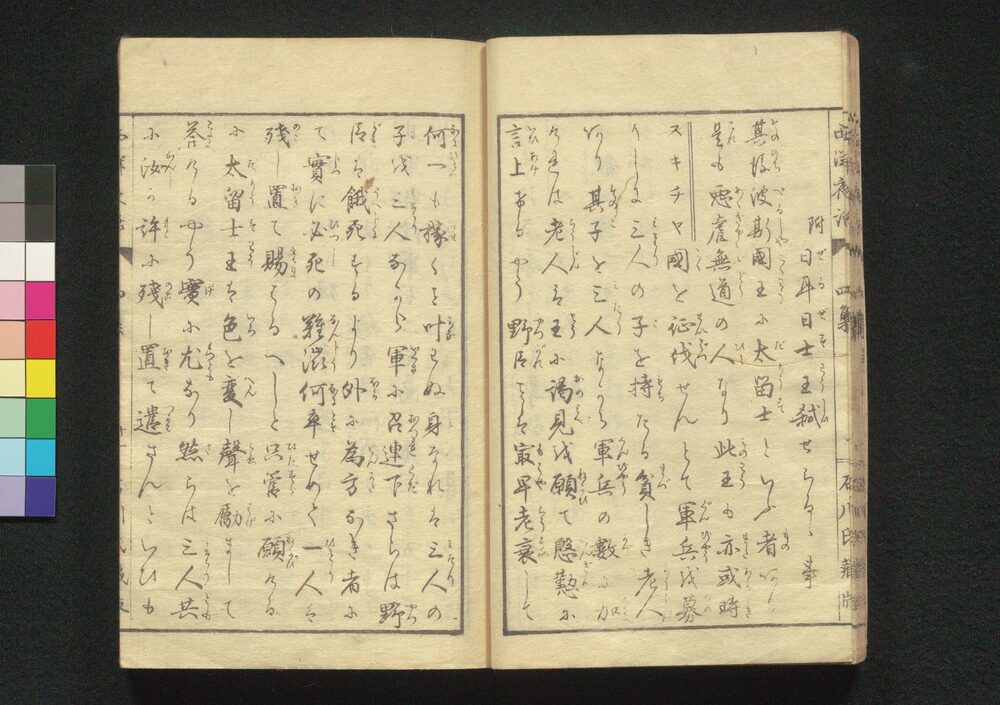 附日耳日士王弑せらるゝ事
其後波斯國王に太留士といふ者あり
是も悪虐無道の人なり此王も亦或時
スキチヤ國を征伐せんとて軍兵を募
りしに三人の子を持たる貧しき老人
あり其子を三人ながら軍兵の數に加
へられしは老人は王に謁見を願て慇懃に
言上するやう野臣ことは最早老衰して
何一も稼くも叶はぬ身なれは三人の
子を三人ながら軍に召連下さらは野
臣は餓死するより外に為方なき者に
て實に必死の難澁何卒せめて一人は
残し置て賜はるへしと只管に願ける
に太留士王は色を変し聲を勵まして
答けるやう實に尤なり然らは三人共
に汝が許に残し置て遣さんといひも
西洋夜話
四集
石川氏藏版